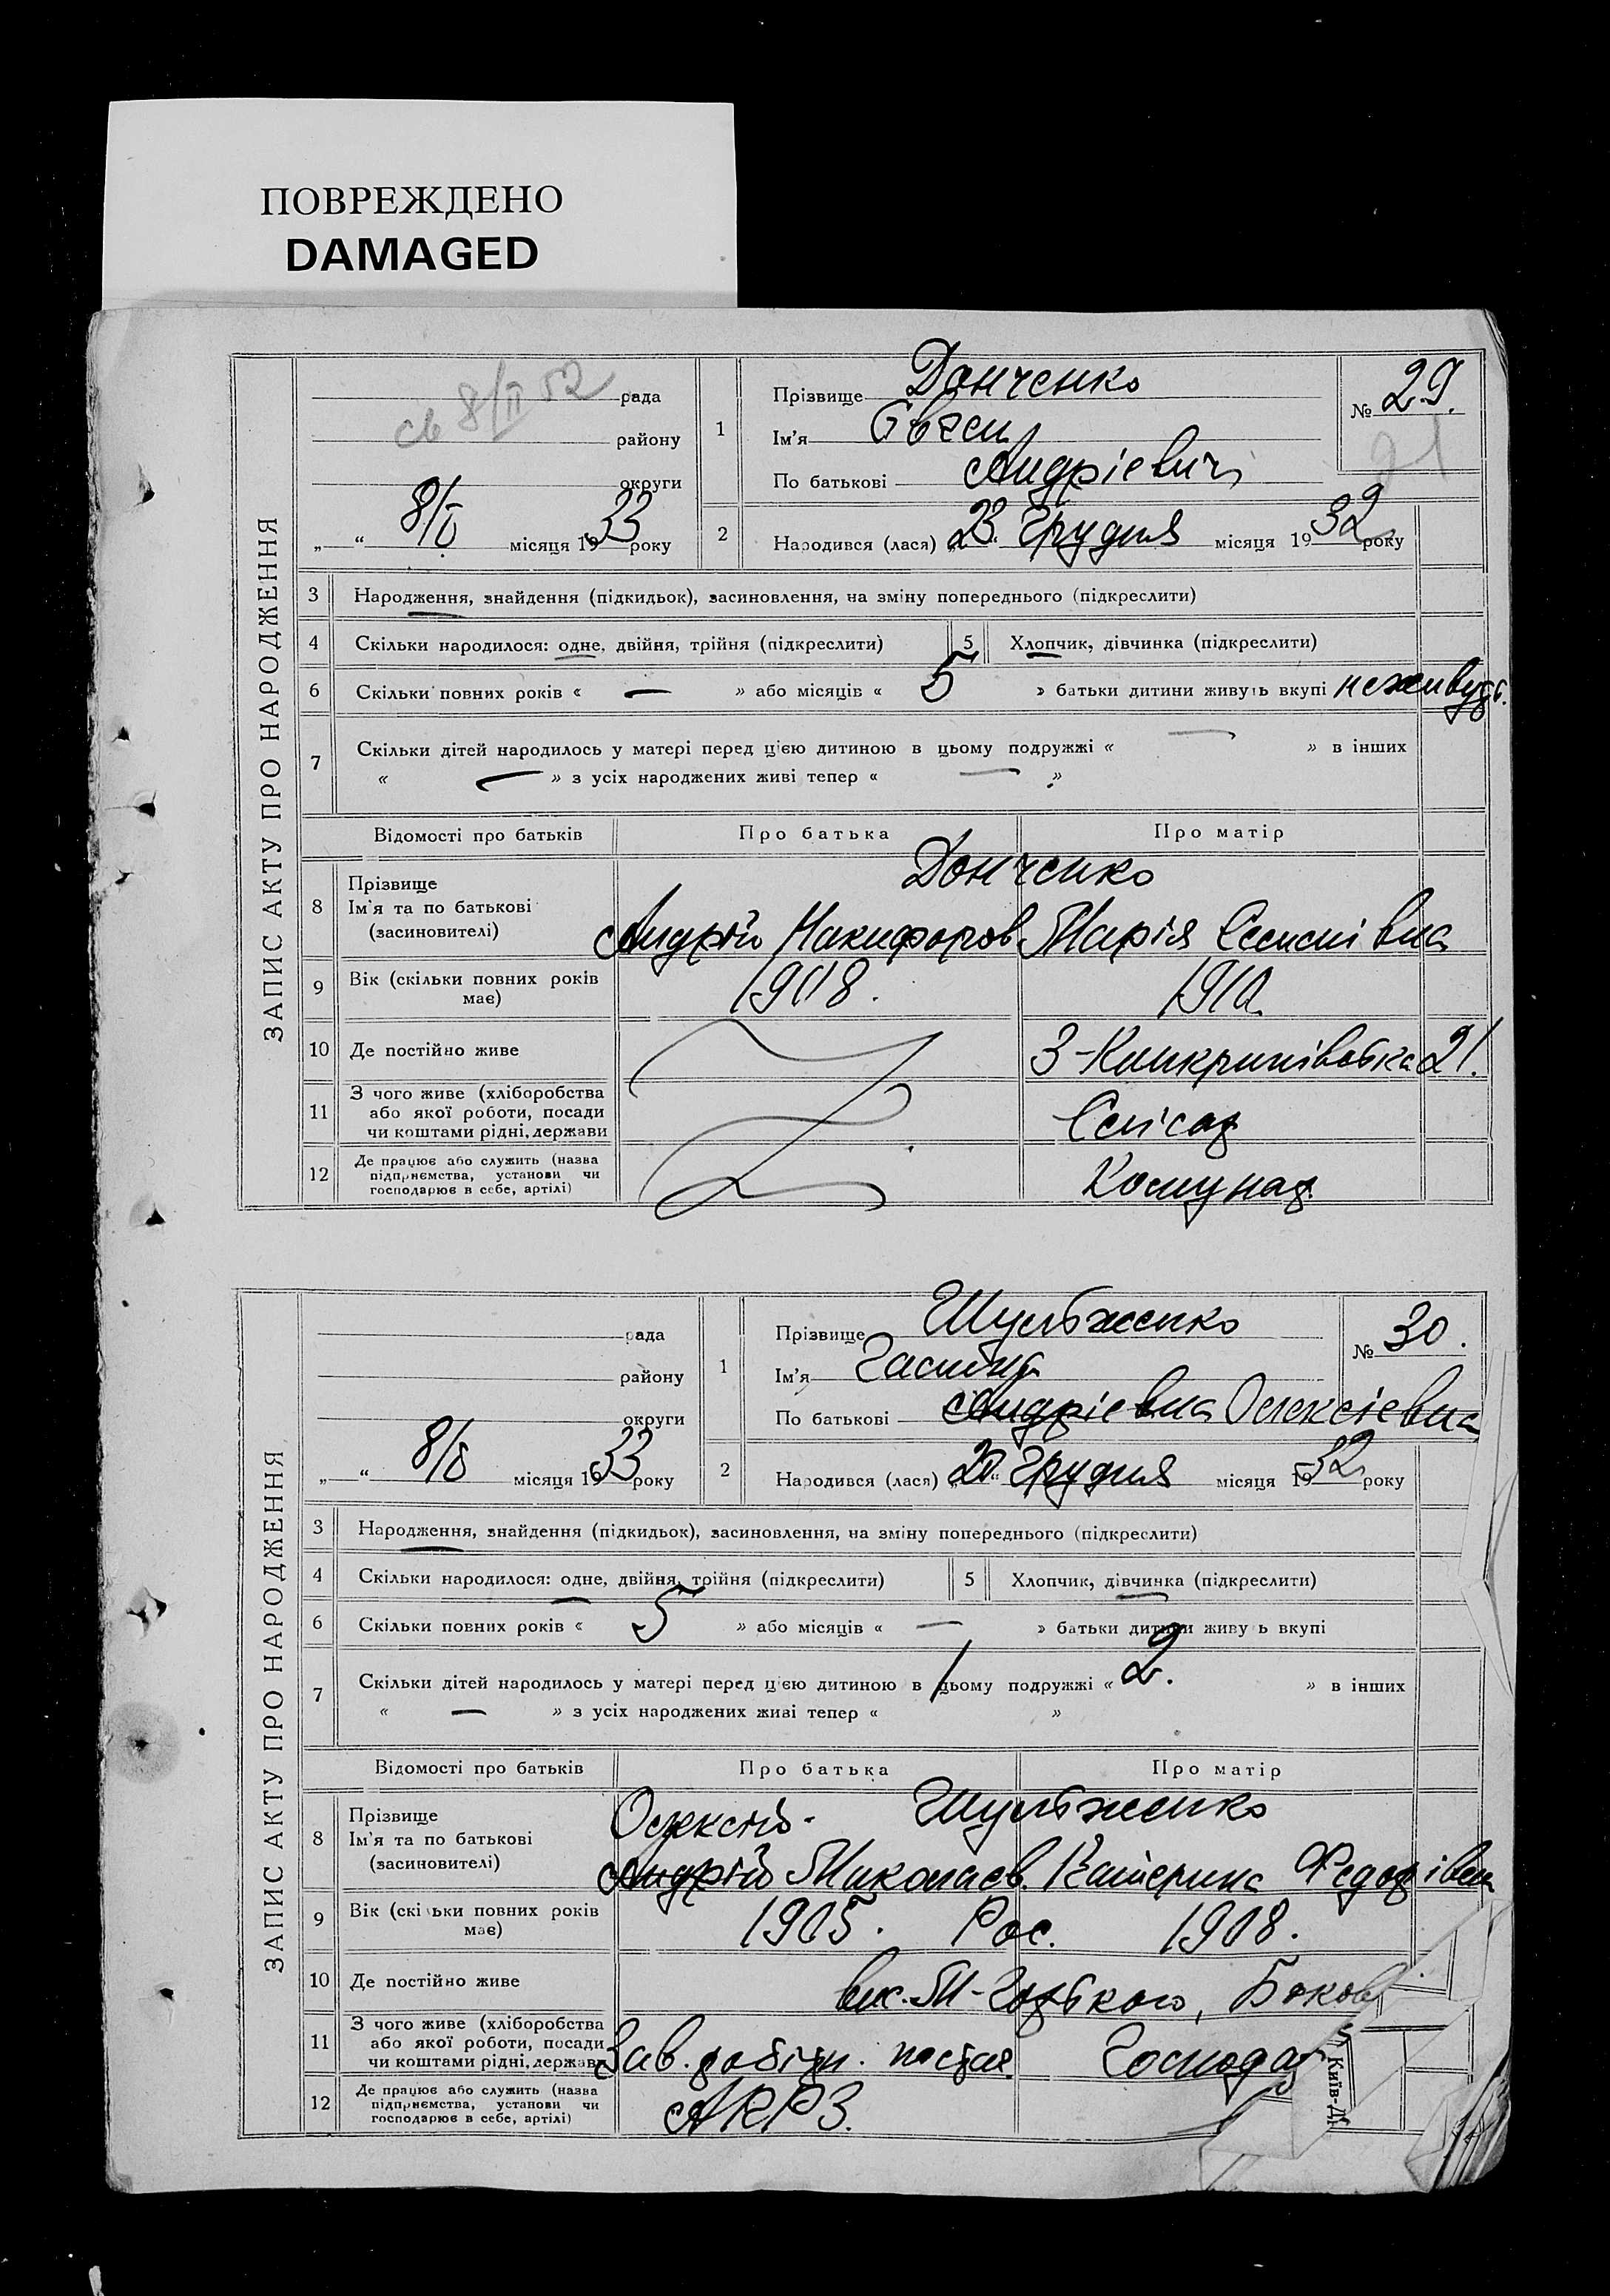 ПОВРЕЖДЕНО
DAMAGED
ЗАПИС АКТУ ПРО НАРОДЖЕННЯ
св 8/ІІ 52
рада
району
округи
„ “ 8/І місяця 1933 року
1
Прізвище Донченко
Ім’я Євген
По батькові Андрієвич
№ 29.
21
2
Народився (лася) „23“ Грудня місяця 1932 року
3 Народження, знайдення (підкидьок), засиновлення, на зміну попереднього (підкреслити)
4 Скільки народилося: одне, двійня, трійня (підкреслити)
5 Хлопчик, дівчинка (підкреслити)
6 Скільки повних років « — » або місяців « 5 » батьки дитини живуть вкупі неживуть.
7 Скільки дітей народилось у матері перед цією дитиною в цьому подружжі « — » в інших
« — » з усіх народжених живі тепер « — »
Відомості про батьків Про батька Про матір
Донченко
8 Прізвище
Ім’я та по батькові
(засиновителі)
Андрій Никифоров. Марія
9 Вік (скільки повних років
має)
1908. 1910.
10 Де постійно живе
21.
11 З чого живе (хліборобства
або якої роботи, посади
чи коштами рідні, держави
12 Де працює або служить (назва
підприємства, установи чи
господарює в себе, артілі)
Комунар
ЗАПИС АКТУ ПРО НАРОДЖЕННЯ
рада
району
округи
„ “ 8/І місяця 1933 року
1
Прізвище Шульженко
Ім’я Галина
По батькові Андрієвна Олексієвна
№ 30.
2
Народився (лася) „20“ Грудня місяця 1932 року
3 Народження, знайдення (підкидьок), засиновлення, на зміну попереднього (підкреслити)
4 Скільки народилося: одне, двійня, трійня (підкреслити)
5 Хлопчик, дівчинка (підкреслити)
6 Скільки повних років « 5 » або місяців « — » батьки дитини живу ь вкупі
7 Скільки дітей народилось у матері перед цією дитиною в цьому подружжі « 2. » в інших
« — » з усіх народжених живі тепер « »
Відомості про батьків Про батька Про матір
Олексій. Шульженко
8 Прізвище
Ім’я та по батькові
(засиновителі)
Андрій Миколаєв. Катерина Федорівна
9 Вік (скі ьки повних років
має)
1905. Рос. 1908.
10 Де постійно живе
вис. М-Горького,
11 З чого живе (хліборобства
або якої роботи, посади
чи коштами рідні, держави
Зав. робітн. постач. Господар
12 Де працює або служить (назва
підприємства, установи чи
господарює в себе, артілі)
АКРЗ.
Київ-Д